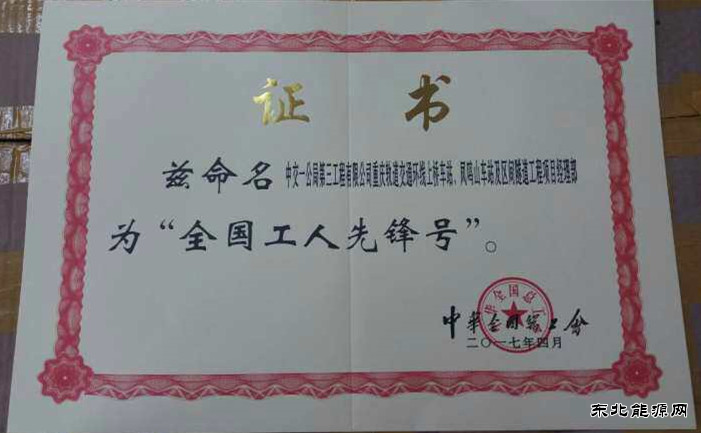 证书
兹命名 中交一公局第三工程有限公司重庆轨道交通环线上桥车站、凤鸣山车站及区间隧道工程项目经理部
为“全国工人先锋号”。
中华全国总工会
二〇一七年四月
东北能源网